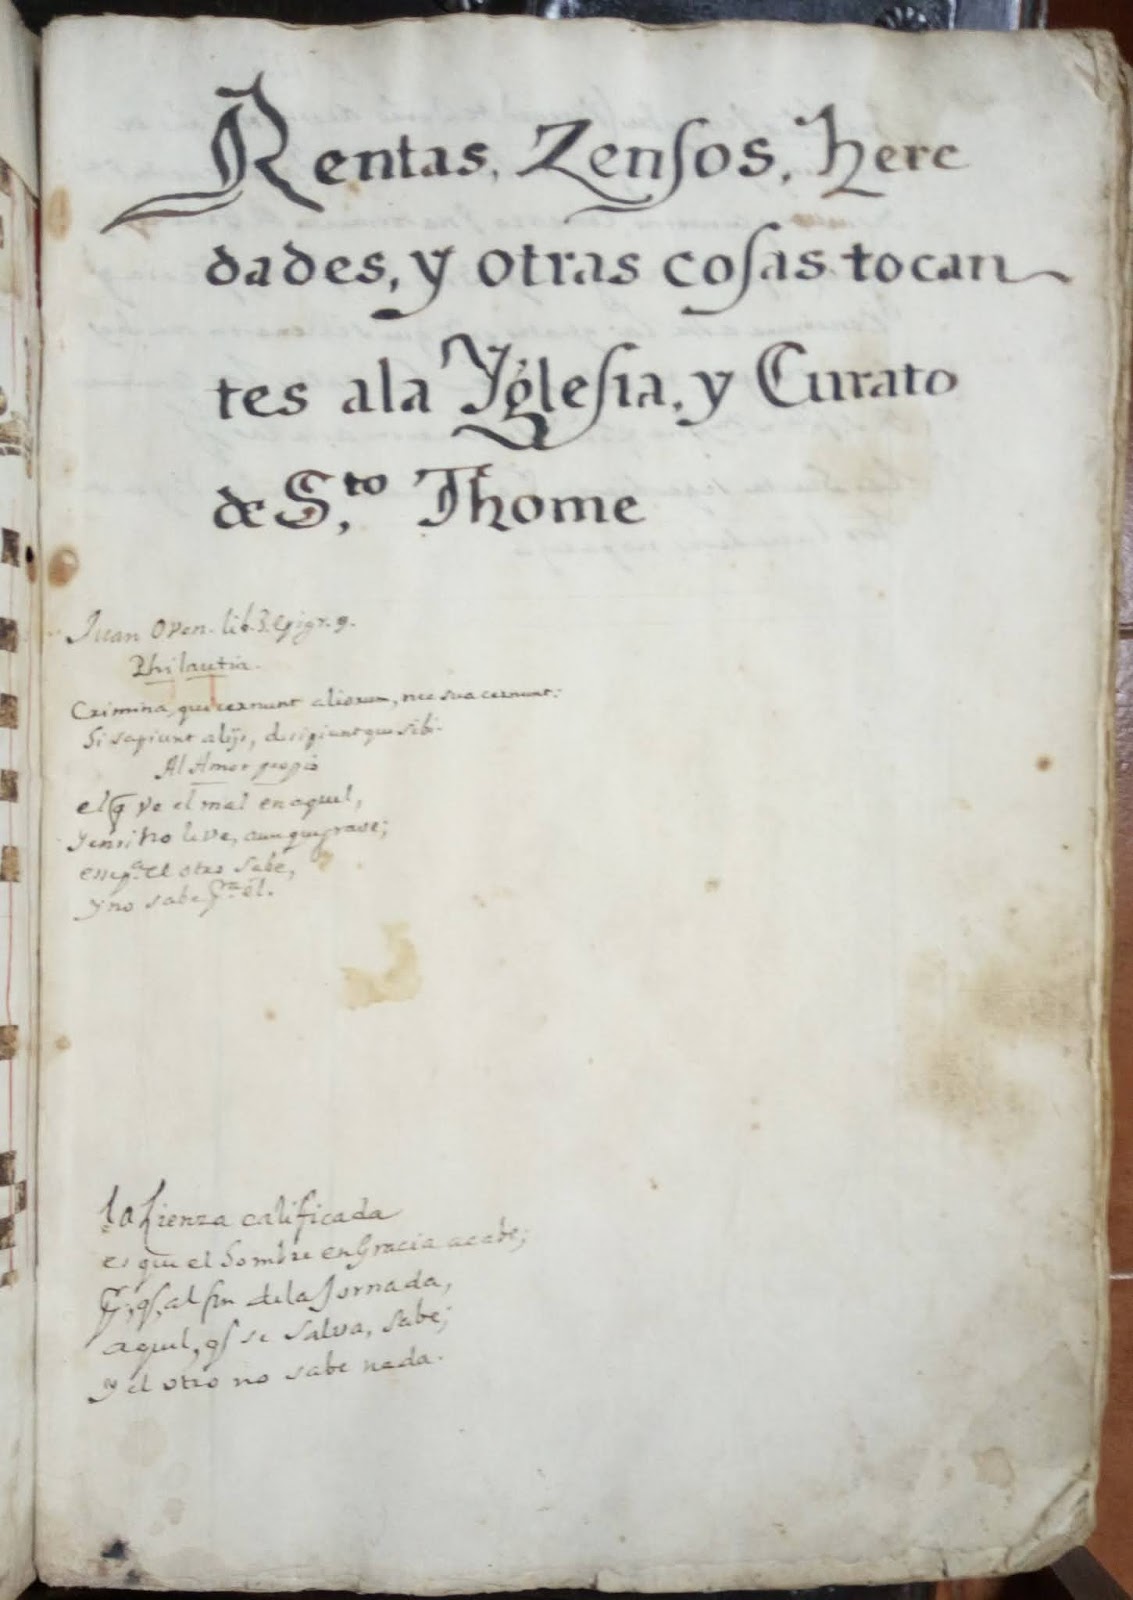 Rentas, Zensos, here
dades, y otras cosas tocan
tes ala Yglesia, y Curato
de S.to Thome
Juan Oven. lib. 3. Epigr. 9.
Philautia.
Crimina, qui cernunt aliorum, nec sua cernunt:
Si sapiunt alijs, desipiuntque sibi.
Al Amor propio
el q̄ ve el mal en aquel,
y en si no le ve, aunque grave;
esse p.a el otro sabe,
y no sabe p.ra el.
la Zienza calificada
es que el hombre en Gracia acabe;
q, al fin de la Jornada,
aquel, q se salva, sabe;
y el otro no sabe nada.